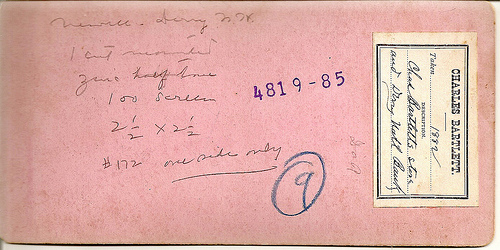 Newell - Derry N.H.
1 cut mounted
zinc halftone
100 screen
2 1/2 x 2 1/2
#172 one side only
4819-85
9
CHARLES BARTLETT.
Taken 1882
DESCRIPTION.
Chas Bartletts store
and Derry Natl Bank